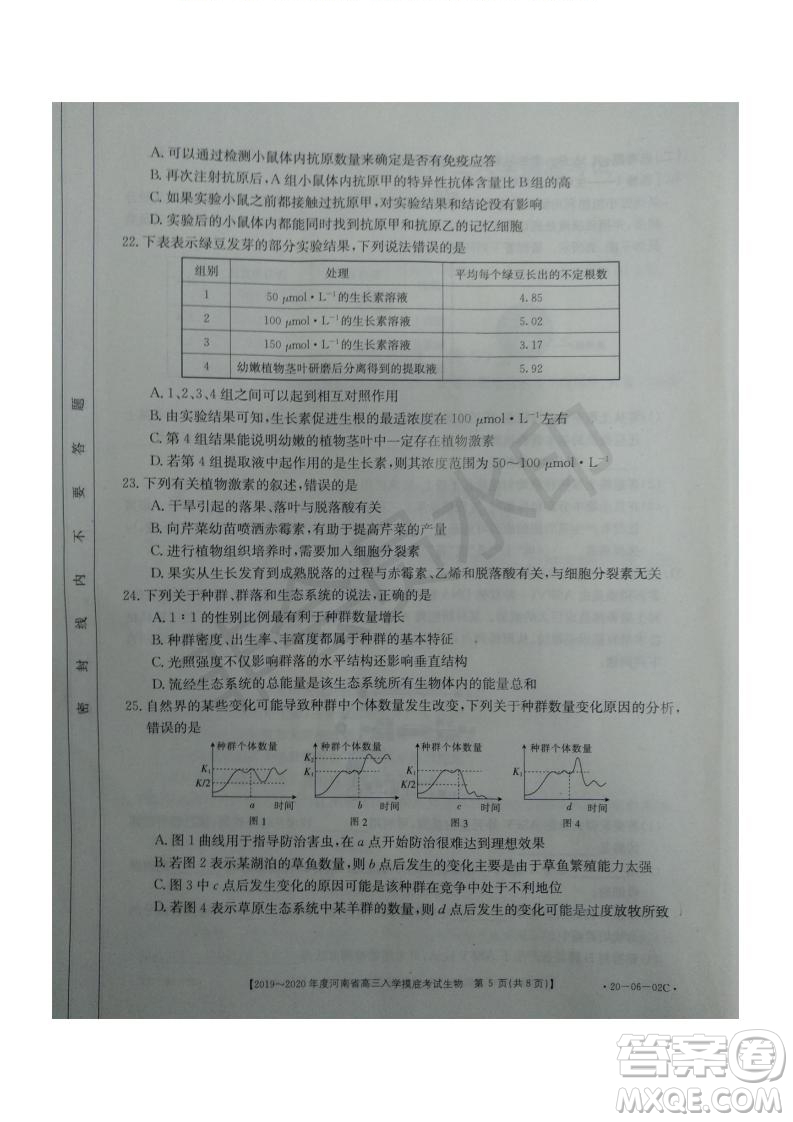 A. 可以通过检测小鼠体内抗原数量来确定是否有免疫应答
B. 再次注射抗原后，A 组小鼠抗原甲的特异性抗体含量比 B 组的高
C. 如果实验小鼠之前都接触过抗原甲，对实验结果和结论没有影响
D. 实验后的小鼠体内都能同时找到抗原甲和抗原乙的记忆细胞
22. 下表表示绿豆发芽的部分实验结果，下列说法错误的是
组别 处理 平均每个绿豆长出的不定根数
1 50 μmol·L⁻¹的生长素溶液 4.85
2 100 μmol·L⁻¹的生长素溶液 5.02
3 150 μmol·L⁻¹的生长素溶液 3.17
4 幼嫩植物茎叶研磨后分离得到的提取液 5.92
A. 1、2、3、4 组之间可以起到相互对照作用
B. 由实验结果可知，生长素促进生根的最适浓度在 100 μmol·L⁻¹左右
C. 第 4 组结果能说明幼嫩的植物茎叶中一定存在植物激素
D. 若第 4 组提取液中起作用的是生长素，则其浓度范围为 50～100 μmol·L⁻¹
23. 下列有关植物激素的叙述，错误的是
A. 干旱引起的落果、落叶与脱落酸有关
B. 向芹菜幼苗喷洒赤霉素，有助于提高芹菜的产量
C. 进行植物组织培养时，需要加入细胞分裂素
D. 果实从生长发育到成熟脱落的过程与赤霉素、乙烯和脱落酸有关，与细胞分裂素无关
24. 下列关于种群、群落和生态系统的说法，正确的是
A. 1∶1 的性别比例最有利于种群数量增长
B. 种群密度、出生率、丰富度都属于种群的基本特征
C. 光照强度不仅影响群落的水平结构还影响垂直结构
D. 流经生态系统的总能量是该生态系统所有生物体内的能量总和
25. 自然界的某些变化可能导致种群中个体数量发生改变，下列关于种群数量变化原因的分析，
错误的是
种群个体数量 种群个体数量 种群个体数量 种群个体数量
K₁ K/2 a 时间 K₂ K₁ b 时间 K₁ K/2 c 时间 K₁ K/2 d 时间
图 1 图 2 图 3 图 4
A. 图 1 曲线用于指导防治害虫，在 a 点开始防治很难达到理想效果
B. 若图 2 表示某湖泊的草鱼数量，则 b 点后发生的变化主要是由于草鱼繁殖能力太强
C. 图 3 中 c 点后发生变化的原因可能是该种群在竞争中处于不利地位
D. 若图 4 表示草原生态系统中某羊群的数量，则 d 点后发生的变化可能是过度放牧所致
【2019～2020 年度河南省高三入学摸底考试生物 第 5 页(共 8 页)】
·20-06-02C·
密封线内不要答题
水印
答案圈
MXQE.COM